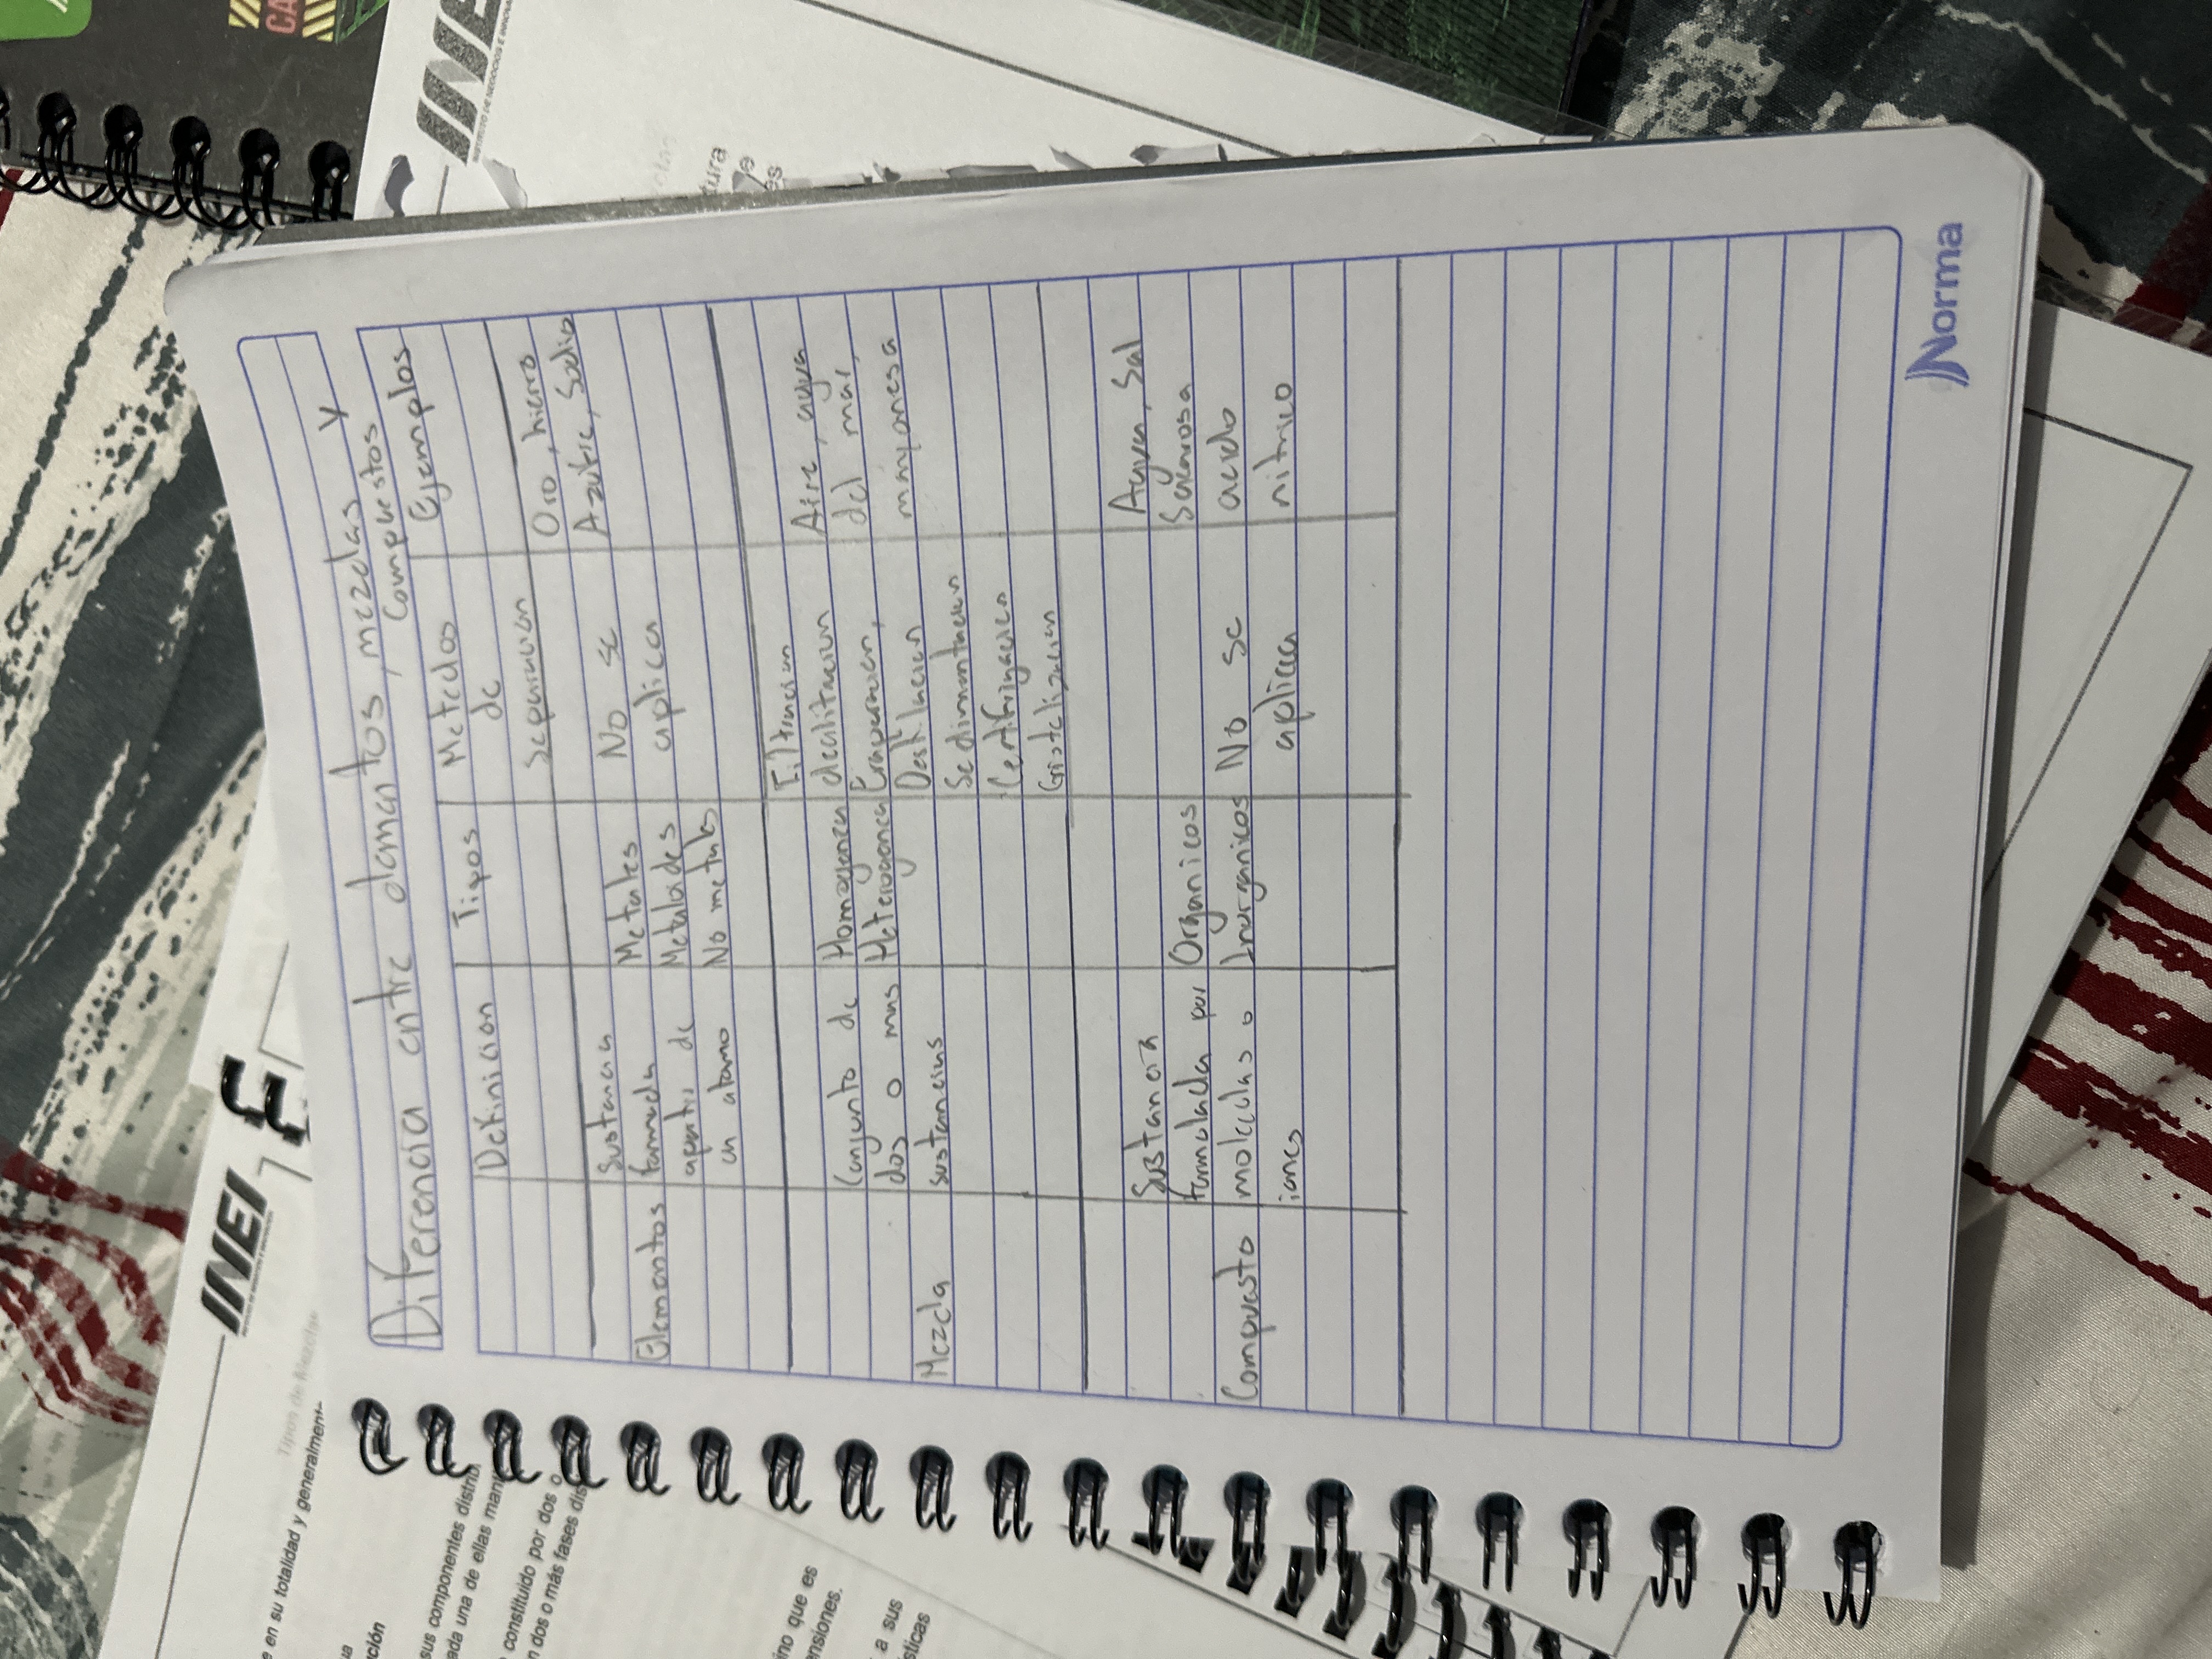 Diferencia entre elementos, mezclas y
compuestos
Definicion
Tipos
Metedos
de
Separacion
Ejemplos
Elementos
Sustancia
formada
apartir de
un atomo
Metales
Metaloides
No metales
No se
aplica
Oro, hierro
Azufre, Sodio
Mezcla
Conjunto de
dos o mas
sustancias
Homogenea
Heterogenea
Filtracion
decantacion
Evaporacion,
Destilacion
Sedimentacion
Cristalizacion
Aire, agua
del mar,
mayonesa
Compuesto
Sustancia
formulada por
moleculas o
iones
Organicos
Inorganicos
No se
aplica
Agua, Sal
Sacarosa
acido
nitrico
Norma
INEI
INEI
e en su totalidad y generalment
sus componentes distrib
ada una de ellas man
constituido por dos o
n dos o más fases dis
ino que es
ensiones.
a sus
sticas
Tipos de Mezclas
ción
tura